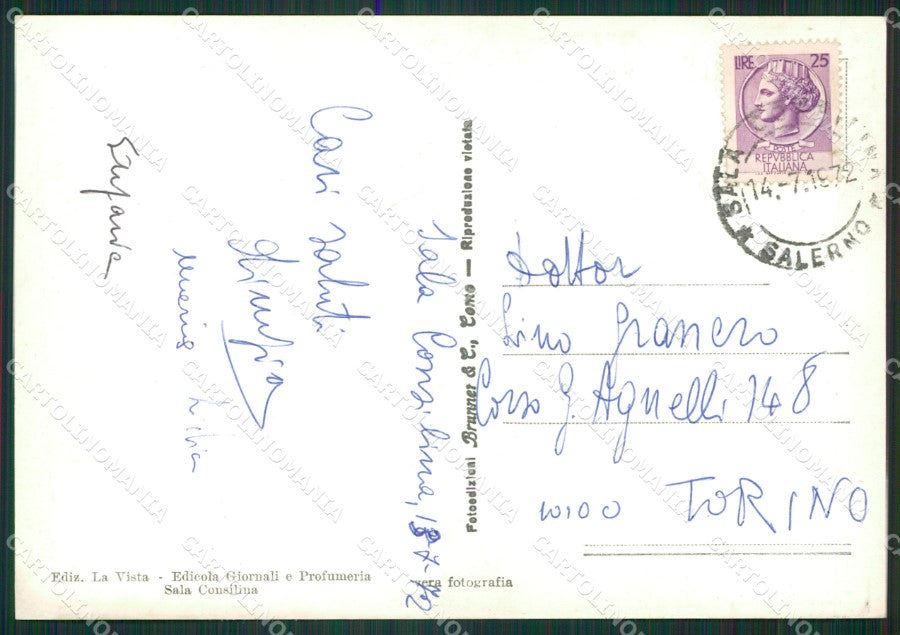 Sala Consilina, 13-7-72
Cari saluti
Maria Livia
Dottor
Lino Granero
Corso G. Agnelli 148
10100 TORINO
LIRE 25
POSTE
REPVBBLICA
ITALIANA
SALA CONSILINA
14.-7.1972
* SALERNO *
Fotoedizioni Brunner & C., Como — Riproduzione vietata
Ediz. La Vista - Edicola Giornali e Profumeria
Sala Consilina
vera fotografia
CARTOLINOMANIA